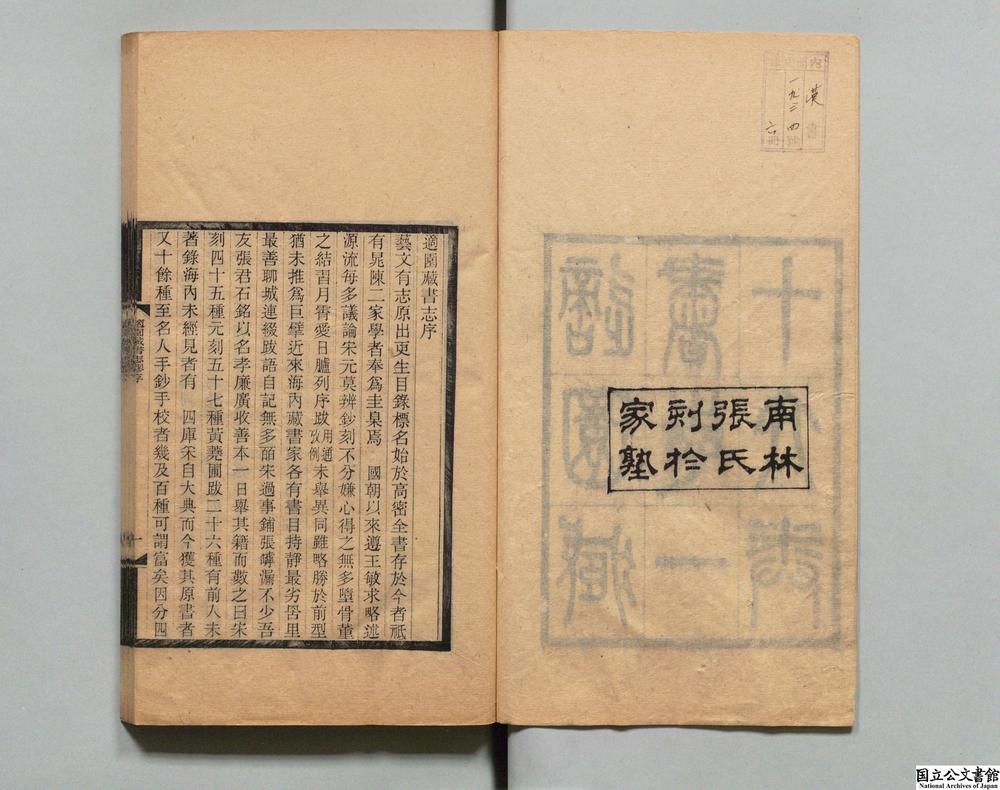 漢書
一九二四號
六冊
南林
張氏
刻於
家塾
適園藏書志序
藝文有志原出更生目錄標名始於高密全書存於今者祗
有晁陳二家學者奉爲圭臬焉　國朝以來遵王敏求略述
源流每多議論宋元莫辨鈔刻不分嫌心得之無多墮骨董
之結習月霄愛日臚列序跋用通攷例未舉異同雖略勝於前型
猶未推爲巨擘近來海內藏書家各有書目持靜最劣罟里
最善聊城連綴跋語自記無多皕宋過事鋪張罅漏不少吾
友張君石銘以名孝廉廣收善本一日舉其籍而數之曰宋
刻四十五種元刻五十七種黃蕘圃跋二十六種有前人未
著錄海內未經見者有　四庫采自大典而今獲其原書者
又十餘種至名人手鈔手校者幾及百種可謂富矣因分四
適園藏書志序
一
国立公文書館
National Archives of Japan